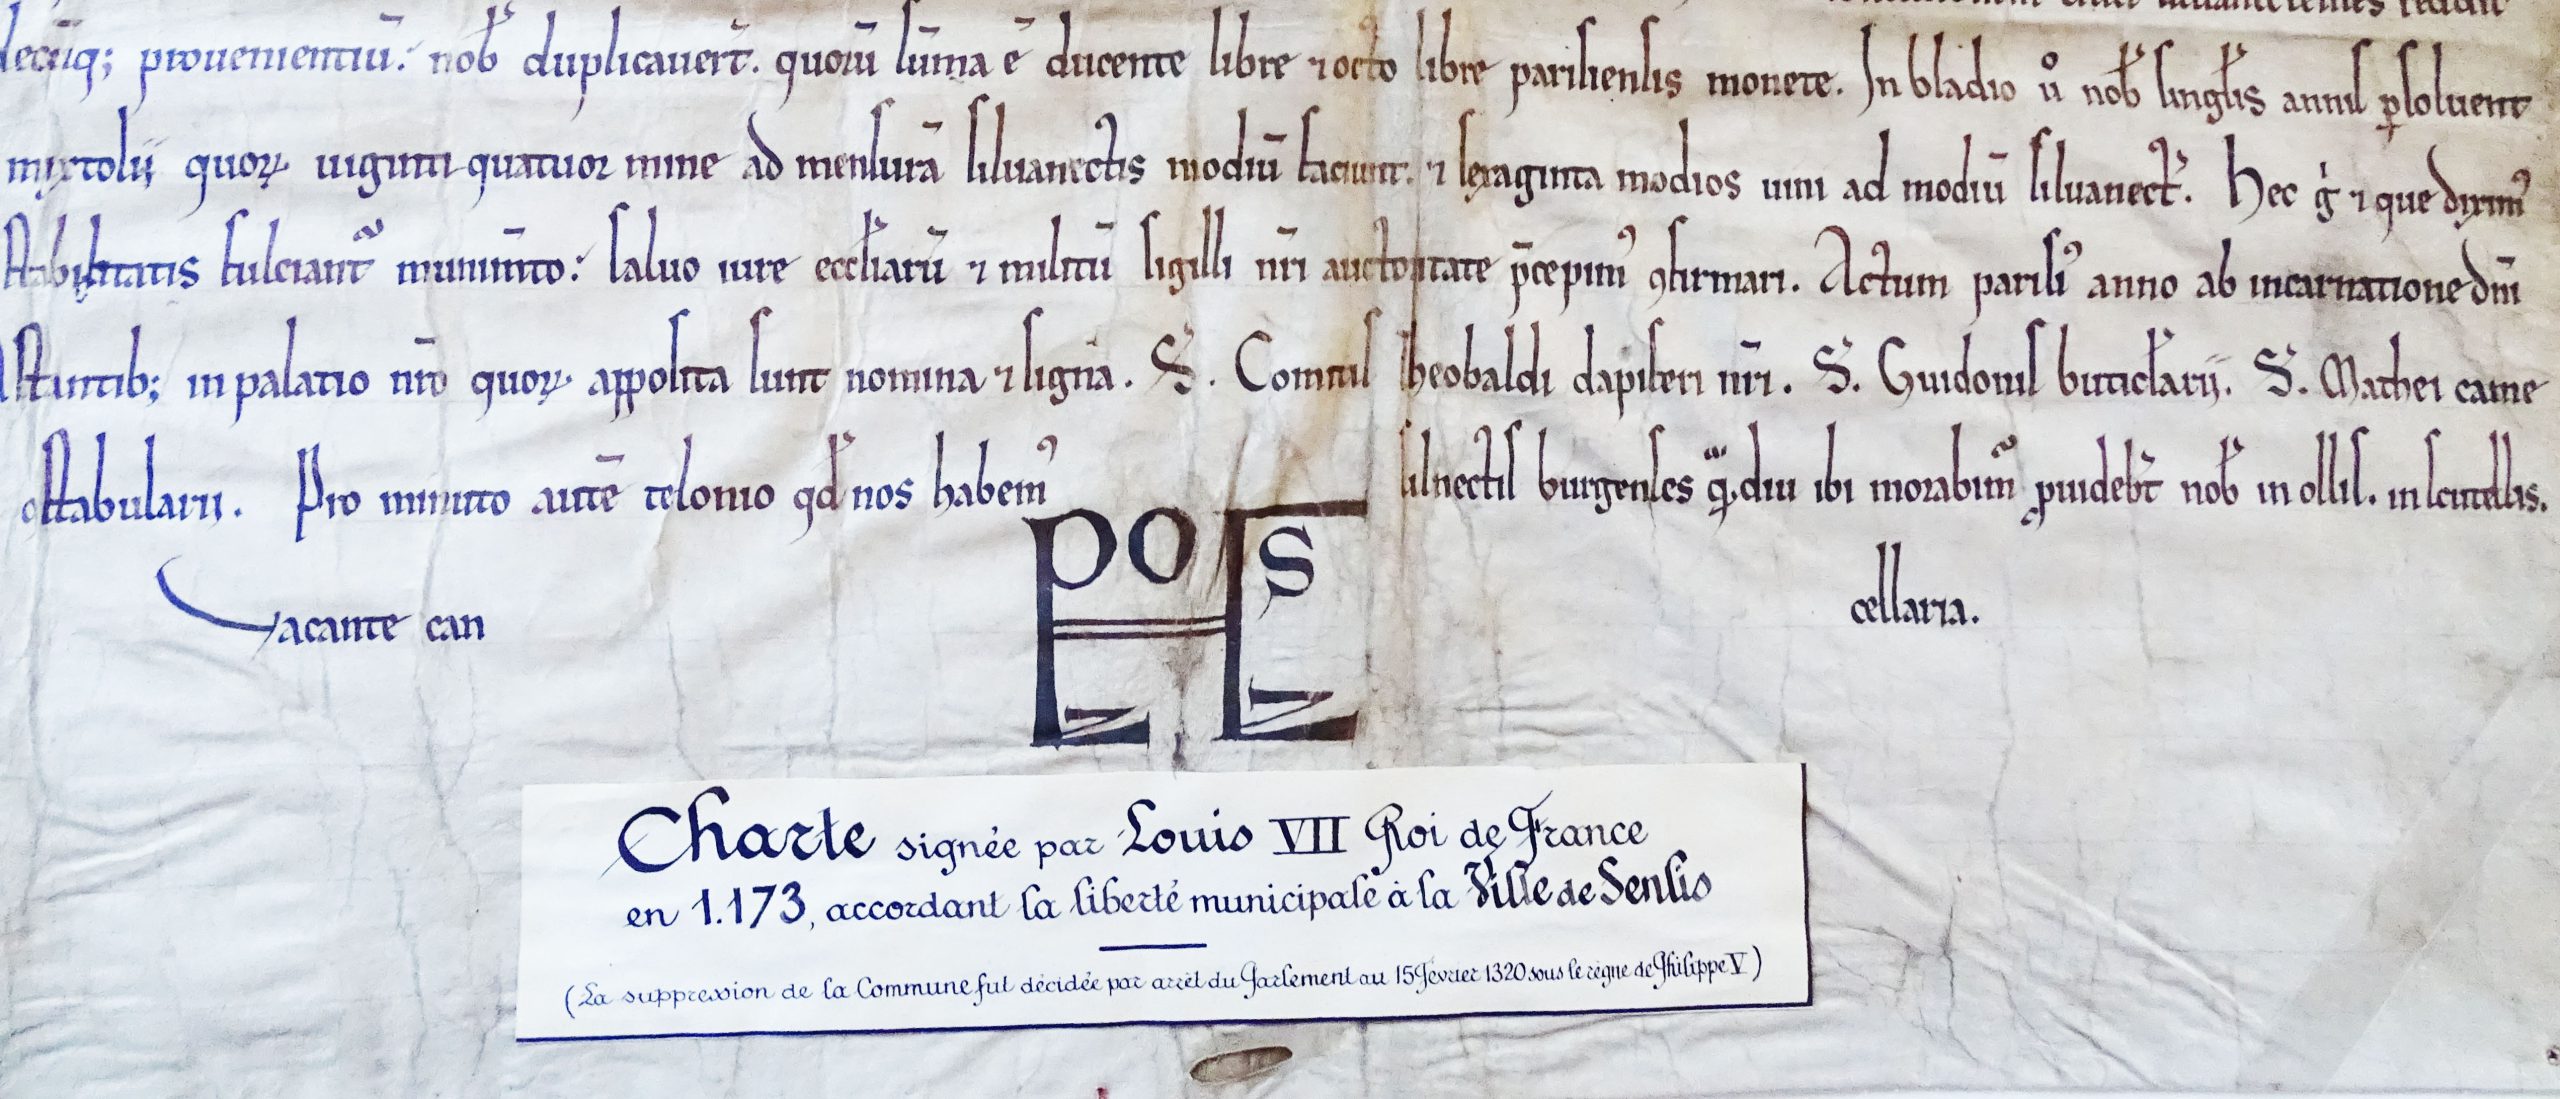 provenientiū. nob̄ duplicauer̄t. quorū sūma ē ducente libre ⁊ octo libre parisiensis monete. In bladio u͛o nob̄ singl̄is annis ꝑsoluent
quoꝝ uiginti quatuor mine ad mensurā siluanectis modiū faciunt. ⁊ sexaginta modios uini ad modiū siluanect̄. Hec g̊ ⁊ que dixim᷒
stabilitatis fulciant᷑ munim̄to. saluo iure eccl̄iarū ⁊ militū sigilli nr̄i auctoritate p̄cepim᷒ ꝯfirmari. Actum parisi᷒ anno ab incarnatione dn̄i
in palatio nr̄o quoꝝ apposita sunt nomina ⁊ signa. S. Comitis theobaldi dapiferi nr̄i. S. Guidonis buticl̄arij. S. Mathei came
ꝯstabularij. Pro minuto autē telonio qd̄ nos habem᷒ silnectis burgenses qͣ̄diu ibi morabim᷒ ꝓuidebt̄ nob̄ in ollis. in scutellis.
Vacante can cellaria.
Charte signée par Louis VII Roi de France
en 1.173, accordant la liberté municipale à la Ville de Senlis
(La suppression de la Commune fut décidée par arrêt du Parlement au 15 Février 1320 sous le règne de Philippe V)